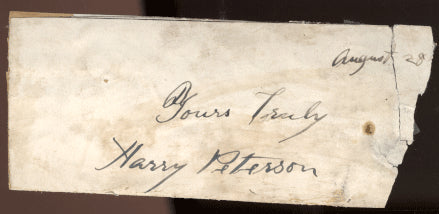 August 28
Yours Truly
Harry Peterson